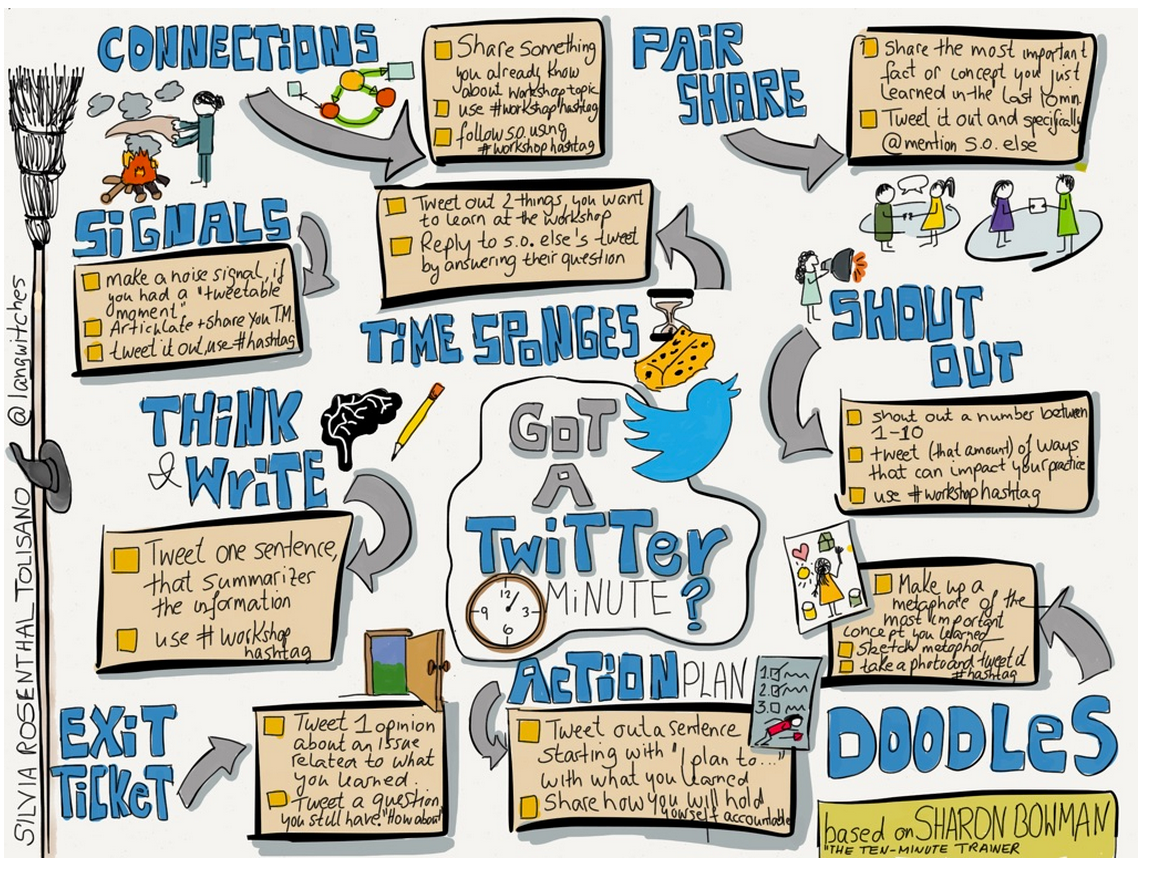 CONNECTIONS
Share something
you already know
about workshop topic
use #workshophashtag
follow s.o. using
#workshophashtag
PAIR
SHARE
Share the most important
fact or concept you just
learned in the last 10 min.
Tweet it out and specifically
@mention s.o. else
SIGNALS
make a noise signal, if
you had a "tweetable
moment"
Articulate + share you T.M.
tweet it out, use #hashtag
Tweet out 2 things, you want
to learn at the workshop
Reply to s.o. else's tweet
by answering their question
TIME SPONGES
SHOUT
OUT
shout out a number between
1-10
tweet (that amount) of ways
that can impact your practice
use #workshophashtag
THINK
& WRITE
Tweet one sentence,
that summarizes
the information
use # workshop
hashtag
GOT
A
TWITTER
MINUTE ?
12
9 3
6
Make up a
metaphore of the
most important
concept you learned
sketch metaphor
take a photo and tweet it
#hashtag
DOODLES
EXIT
TICKET
Tweet 1 opinion
about an issue
related to what
you learned.
Tweet a question
you still have "How about
ACTION PLAN
1.
2.
3.
Tweet out a sentence
starting with "I plan to..."
with what you learned
Share how you will hold
yourself accountable
based on SHARON BOWMAN
"THE TEN-MINUTE TRAINER
SILVIA ROSENTHAL TOLISANO @langwitches